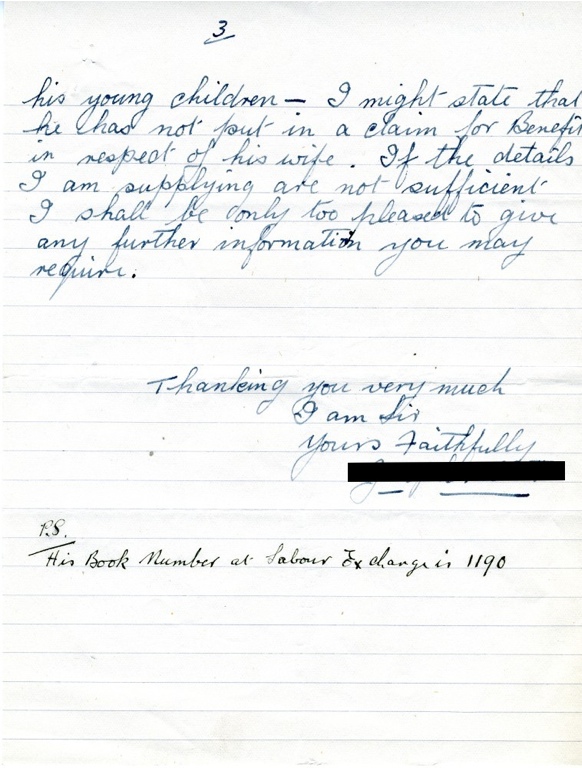 3
his young children — I might state that
he has not put in a claim for Benefit
in respect of his wife. If the details
I am supplying are not sufficient
I shall be only too pleased to give
any further information you may
require.
Thanking you very much
I am Sir
Yours Faithfully
P.S.
His Book Number at Labour Exchange is 1190